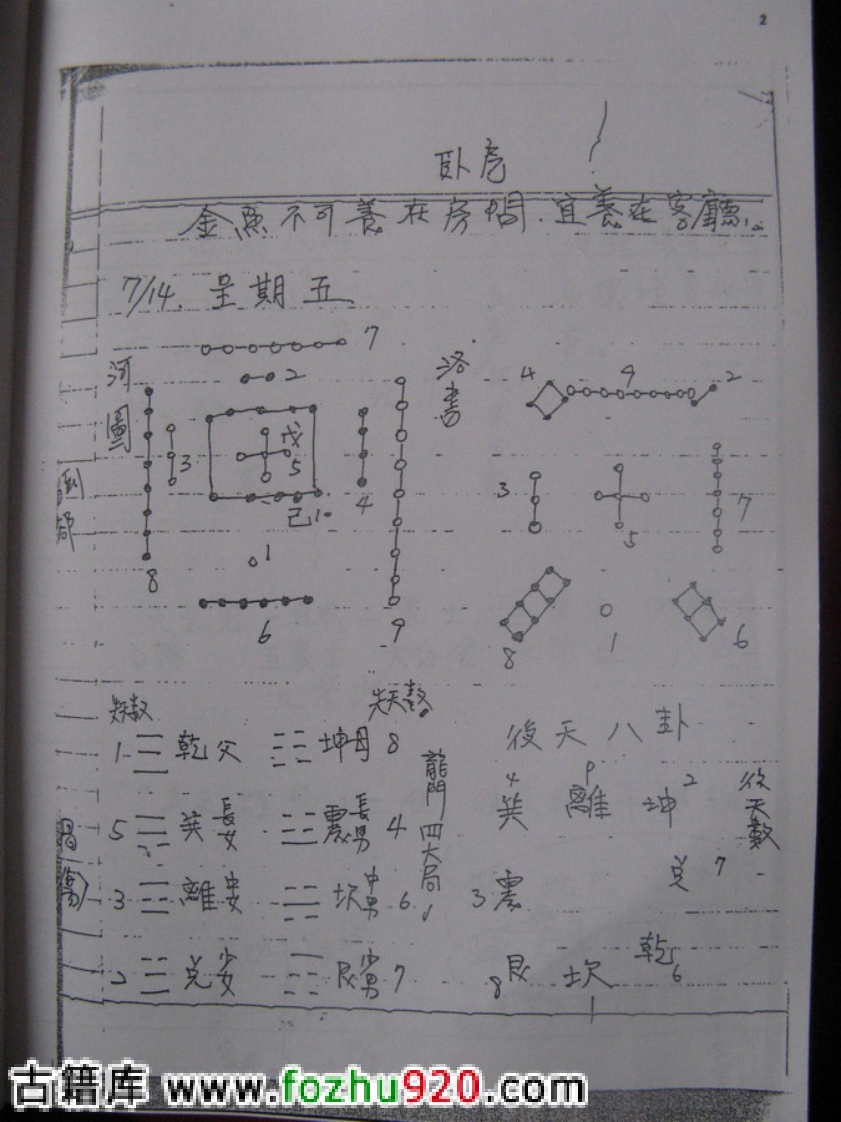 2
卧虎
金魚不可養在房間.宜養在客廳.
7/14. 星期五
河圖
7
2
8
3
戊
5
己10
4
9
1
6
洛書
4 9 2
3 5 7
8 1 6
先天數
1 乾父 坤母 8
5 巽長女 震長男 4
3 離中女 坎中男 6
2 兌少女 艮少男 7
龍門四大局
後天八卦
4 9 2
巽 離 坤
3 震 兌 7
8 艮 坎 乾 6
後天數
古籍库 www.fozhu920.com